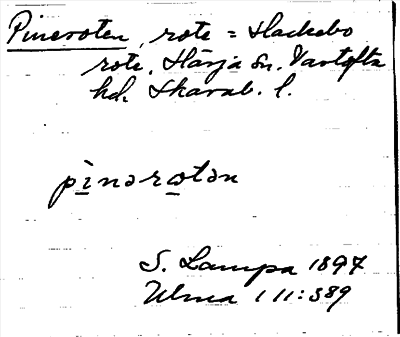 Pineroten, rote = Hackebo
rote, Härja sn. Vartofta
hd. Skarab. l.
pìnərotən
S. Lampa 1897
Ulma 111:389